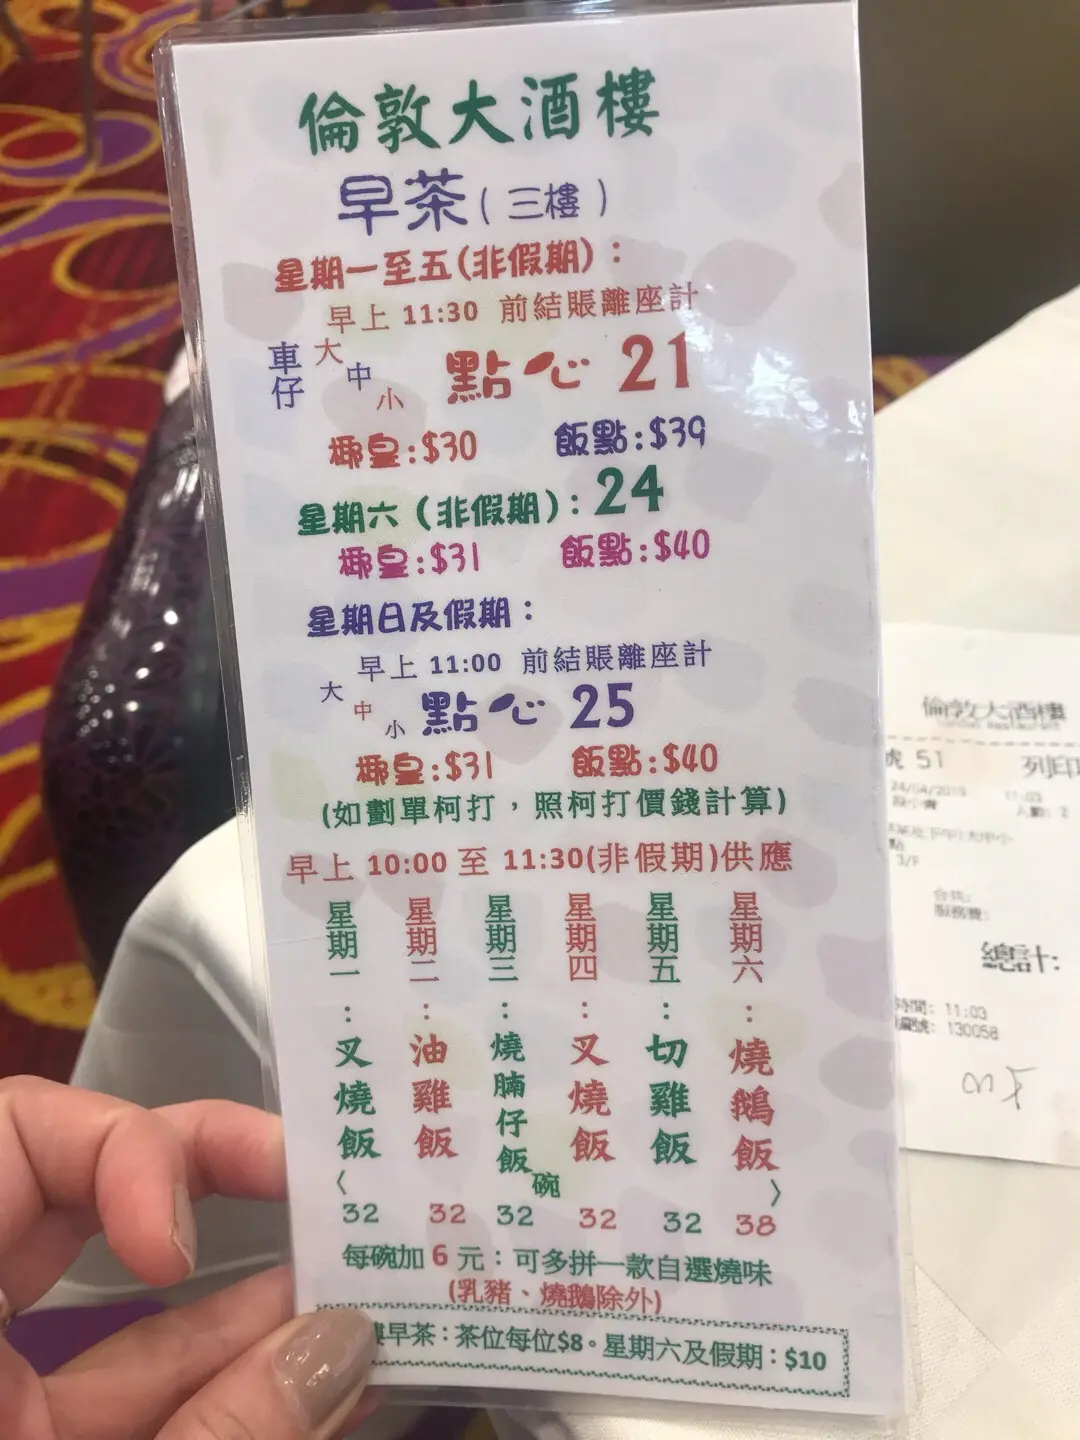 倫敦大酒樓
早茶(三樓)
星期一至五(非假期)：
早上 11:30 前結賬離座計
車仔 大中小 點心 21
椰皇:$30 飯點:$39
星期六(非假期)：24
椰皇:$31 飯點:$40
星期日及假期：
早上 11:00 前結賬離座計
大中小 點心 25
椰皇:$31 飯點:$40
(如劃單柯打，照柯打價錢計算)
早上 10:00 至 11:30(非假期)供應
星期一：叉燒飯
星期二：油雞飯
星期三：燒腩仔飯
星期四：叉燒飯
星期五：切雞飯
星期六：燒鵝飯
〈 碗 〉
32 32 32 32 32 38
每碗加 6 元：可多拼一款自選燒味
(乳豬、燒鵝除外)
樓早茶：茶位每位$8。星期六及假期：$10
倫敦大酒樓
London Restaurant
號 51 列印
24/04/2019 11:03
人數: 2
3/F
合共:
服務費:
總計:
時間: 11:03
號: 130058